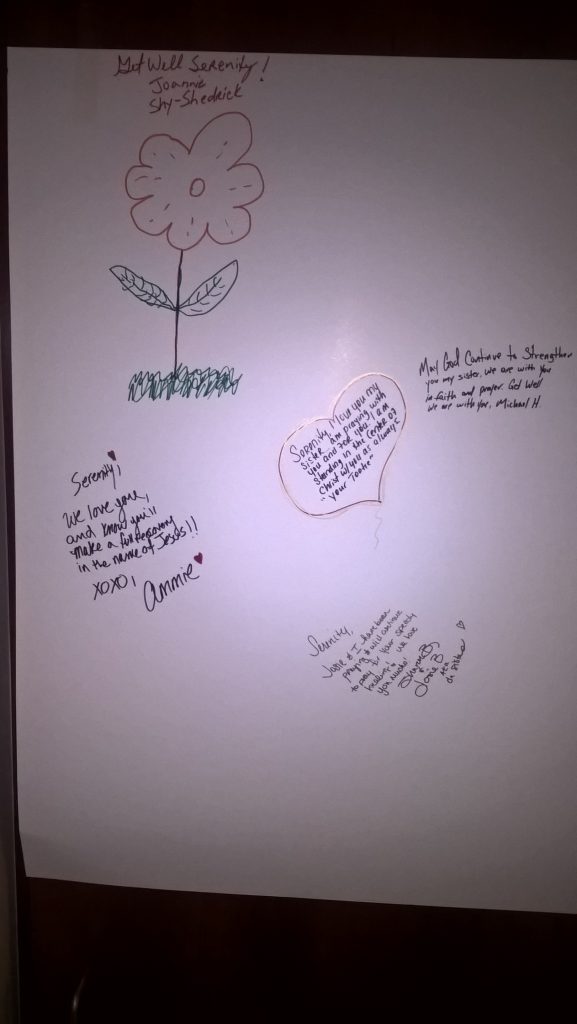 Get Well Serenity!
Joannie
Shy-Shedrick
May God Continue to Strengthen
you my sister, we are with you
in faith and prayer. Get Well
we are with you, Michael H.
Serenity, Love you my
sister. I am praying with
you and for you. I am
standing in the center of
Christ w/you as always
"your Tootie"
Serenity,
We love you,
and know you'll
make a full recovery
in the name of Jesus!!
XOXO,
Annie
Serenity,
Josie & I have been
praying & will continue
to pray for your speedy
healing! We love
you much!
&
Josie B
da sistas